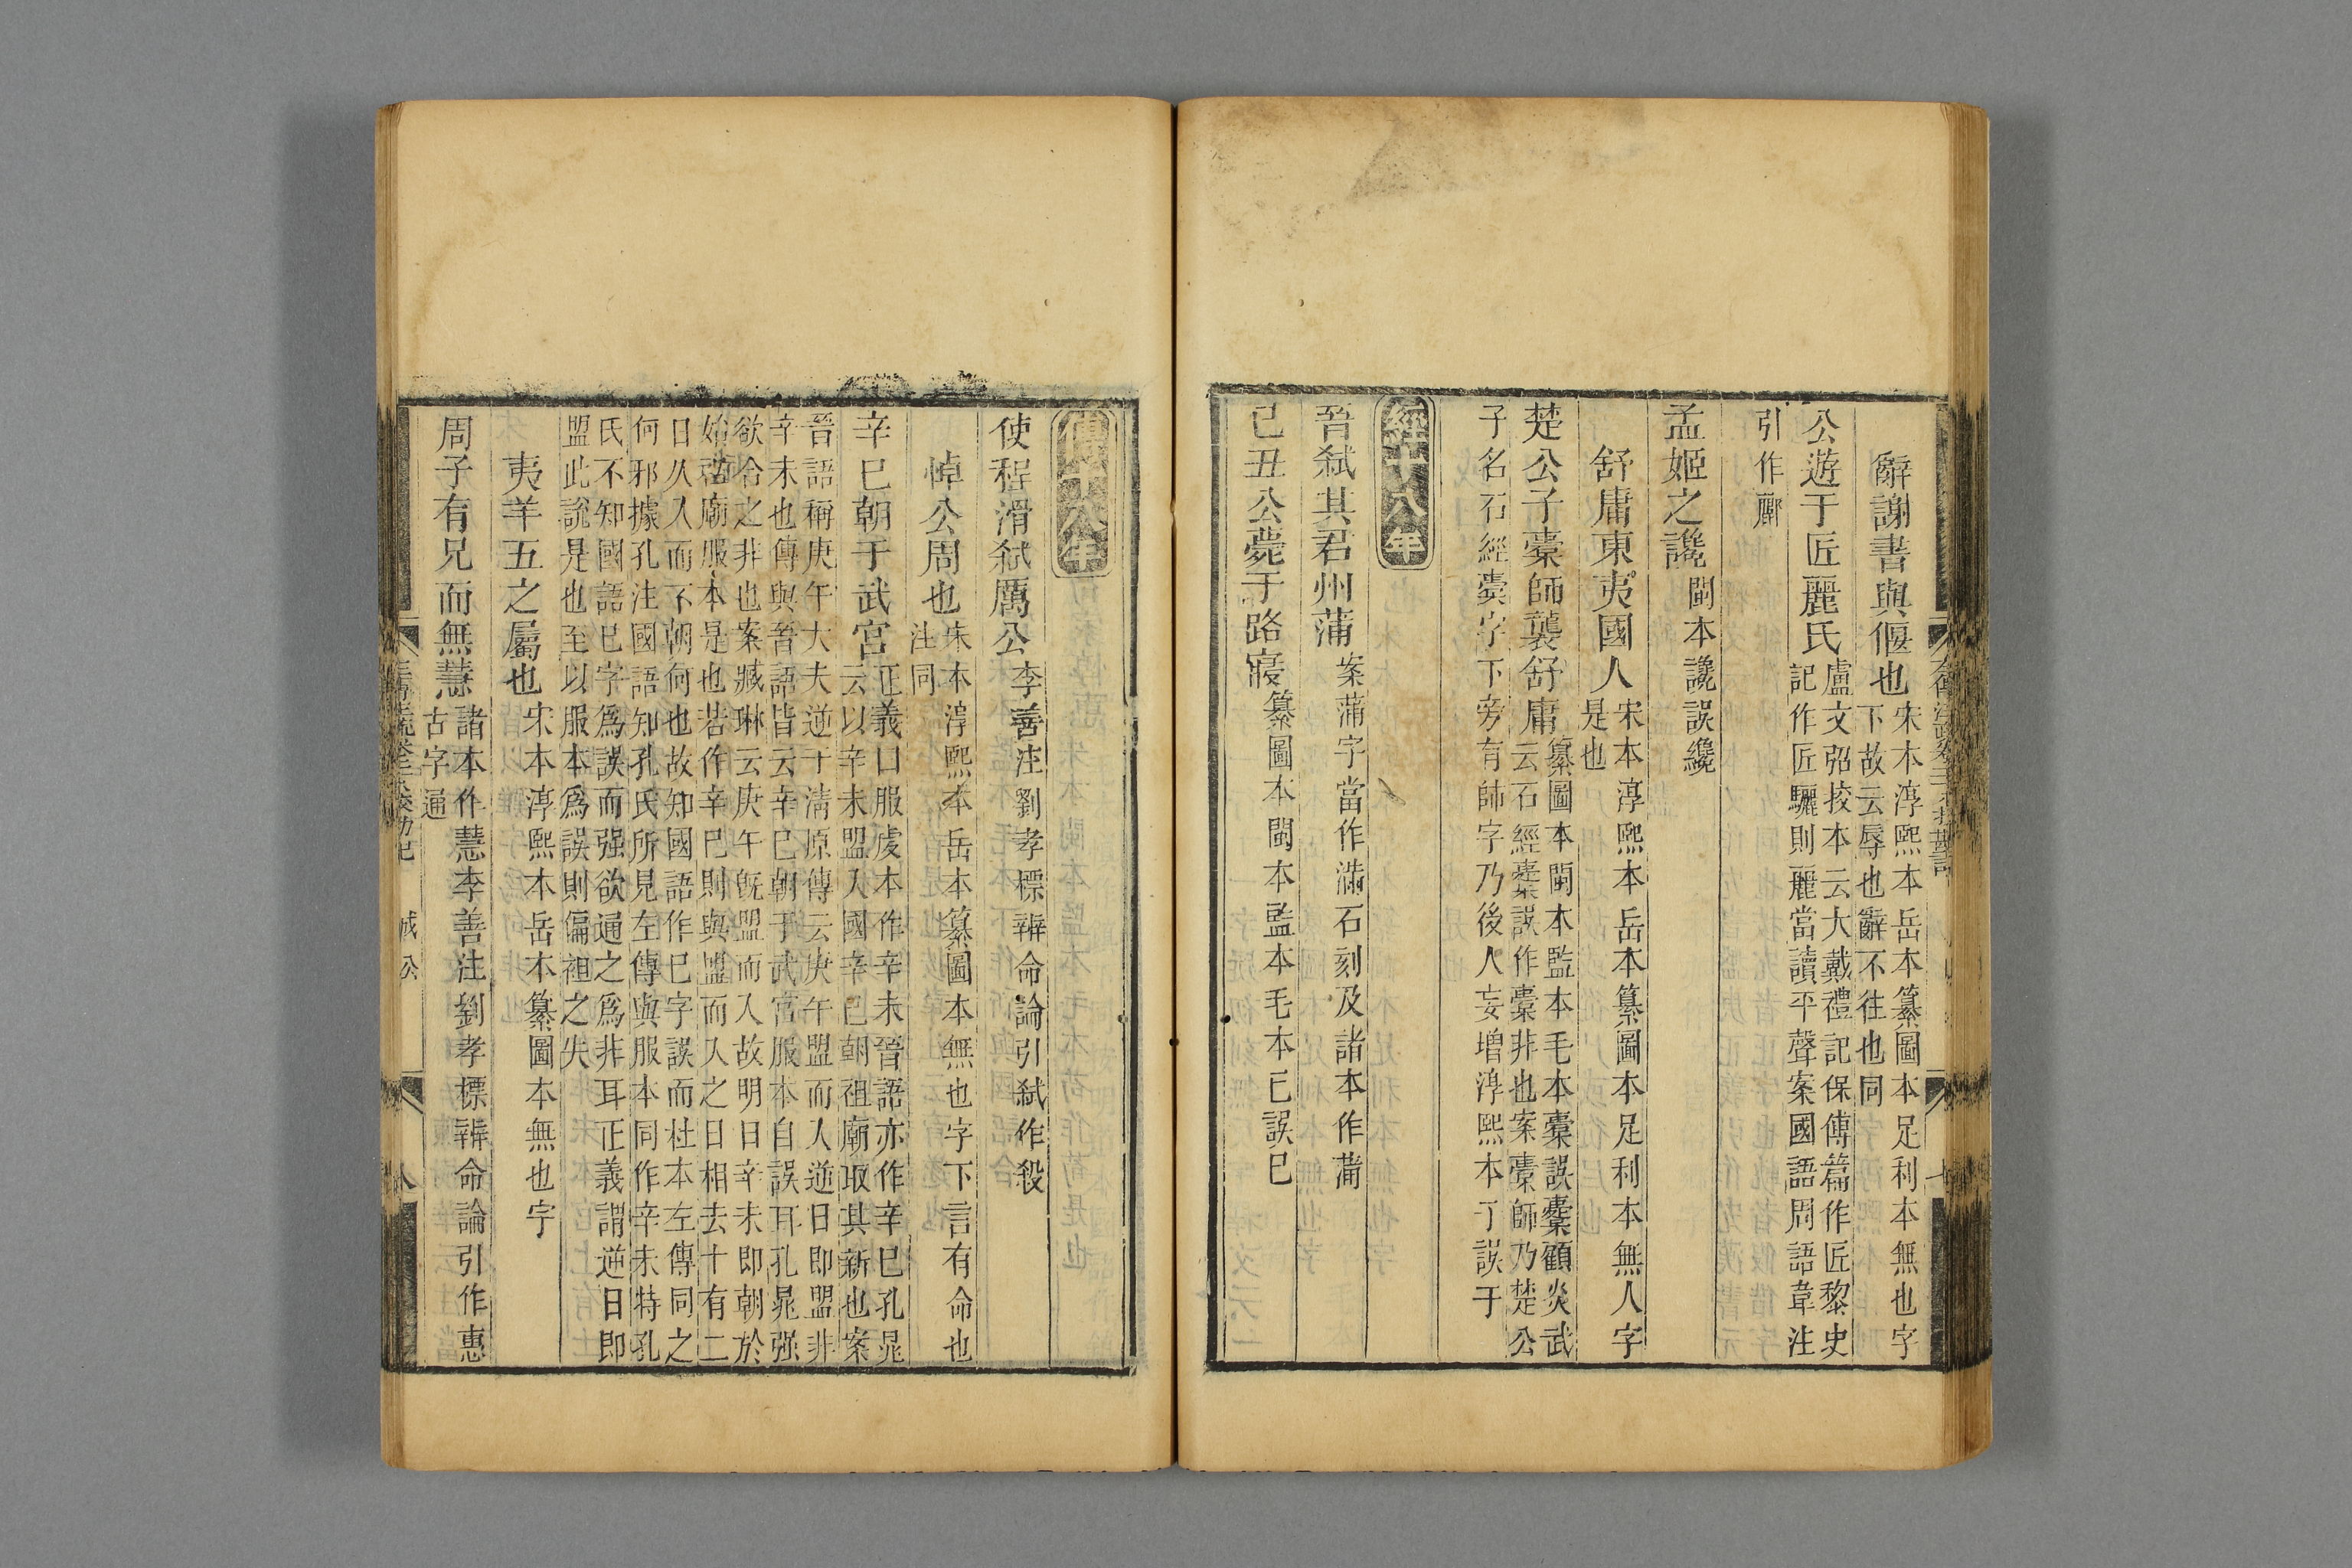 辭謝書與偃也宋本淳熙本岳本纂圖本足利本無也字
下故云辱也辭不往也同
公遊于匠麗氏盧文弨挍本云大戴禮記保傅篇作匠黎史
記作匠驪則麗當讀平聲案國語周語韋注
引作酈
孟姬之讒閩本讒誤纔
舒庸東夷國人宋本淳熙本岳本纂圖本足利本無人字
是也
楚公子橐師襲舒庸纂圖本閩本監本毛本橐誤囊顧炎武
云石經橐誤作囊非也案橐師乃楚公
子名石經橐字下旁有師字乃後人妄增淳熙本于誤于
經十八年
晉弒其君州蒲案蒲字當作滿石刻及諸本作蒲
己丑公薨于路寢纂圖本閩本監本毛本己誤巳
傳十八年
使程滑弒厲公李善注劉孝標辨命論引弒作殺
悼公周也宋本淳熙本岳本纂圖本無也字下言有命也
注同
辛巳朝于武宮正義曰服虔本作辛未晉語亦作辛巳孔晁
云以辛未盟入國辛巳朝祖廟取其新也案
晉語稱庚午大夫逆于清原傳云庚午盟而入逆日即盟非
辛未也傳與晉語皆云辛巳朝于武宮服本自誤耳孔晁强
欲合之非也案臧琳云庚午既盟而入故明日辛未即朝於
始祖廟服本是也若作辛巳則與盟而入之日相去十有二
日久入而不朝何也故知國語作巳字誤而杜本左傳同之
何邪據孔注國語知孔氏所見左傳與服本同作辛未特孔
氏不知國語巳字爲誤而强欲通之爲非耳正義謂逆日即
盟此說是也至以服本爲誤則偏袒之失
夷羊五之屬也宋本淳熙本岳本纂圖本無也字
周子有兄而無慧諸本作慧李善注劉孝標辨命論引作惠
古字通
成公
八